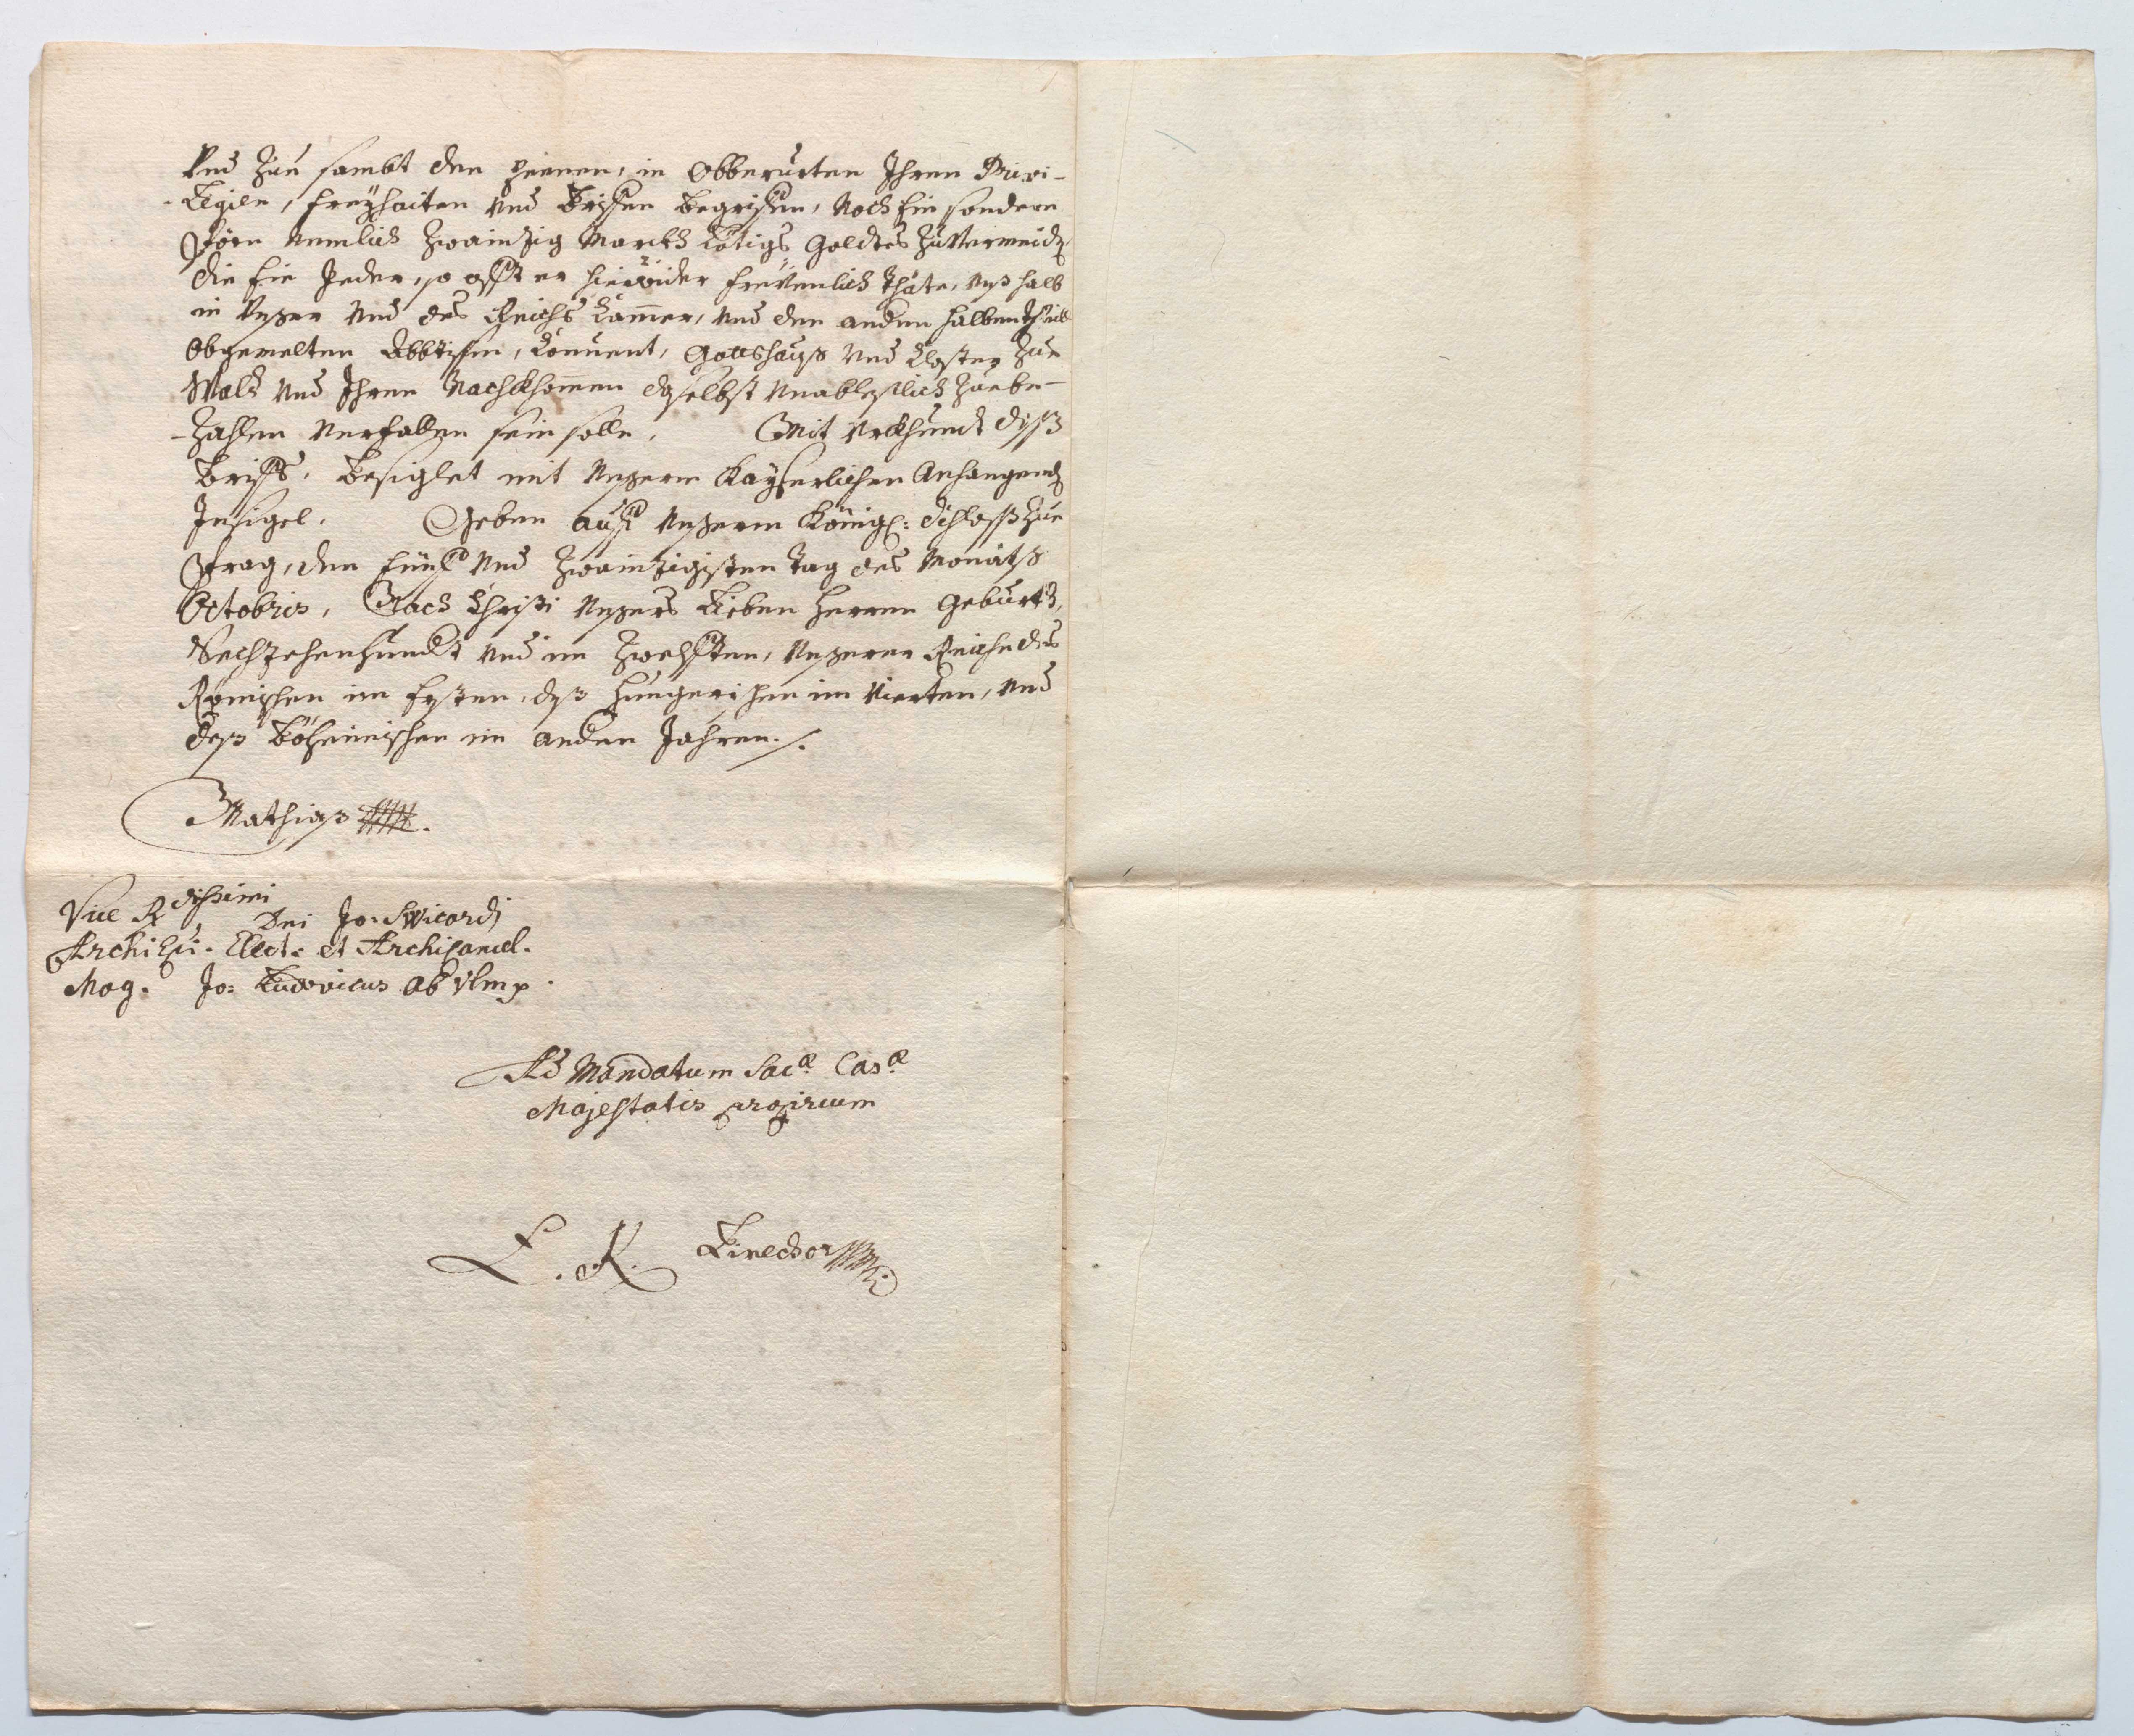 Vnd zue sambt den peenen, in obberurten Ihren Privi-
-legien, freyhaiten vnd Brieffen begriffen, noch ein sondere
Pöen nemlich zwainzig Marckh lötigs Goldes zu vermeidē,
die ein Jeder, so offt er hierwider freuenlich thäte, vns halb
in vnser vnd des Reichs Camer, vnd den andern halben theil
obgemelten Abbtissin, Conuent, Gottshauß vnd Closter zue
Wald vnd Ihren Nachkhomen daselbst vnableslich zuebe-
-zahlen verfallen sein solle. Mit vrkhundt diß
Brieffs, besiglet mit vnserm Kayserlichen Anhangendē
Insigel. Geben auff vnserm Königl: Schloß zue
Prag, den fünff vnd zwainzigisten tag des Monats
Octobris, Nach Christi vnsers Lieben Herren geburth,
Sechzehenhundt vnd im zwelfften, vnserer Reiche des
Römischen im Ersten, deß Hungerischen im vierten, vnd
deß Böheimischen im andern Jahren./.
Mathias
Vice Rdissimi Dni Jo: Swicardi
Archiepi. Elect: et Archicancel.
Mog. Jo: Ludovicus ab Vlm
Ad Mandatum Sacæ Casæ
Majestatis proprium